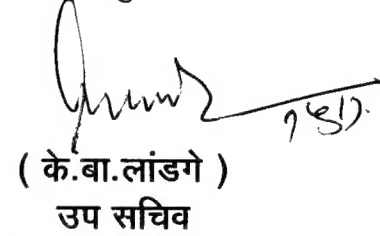 ( के.बा.लांडगे )
उप सचिव